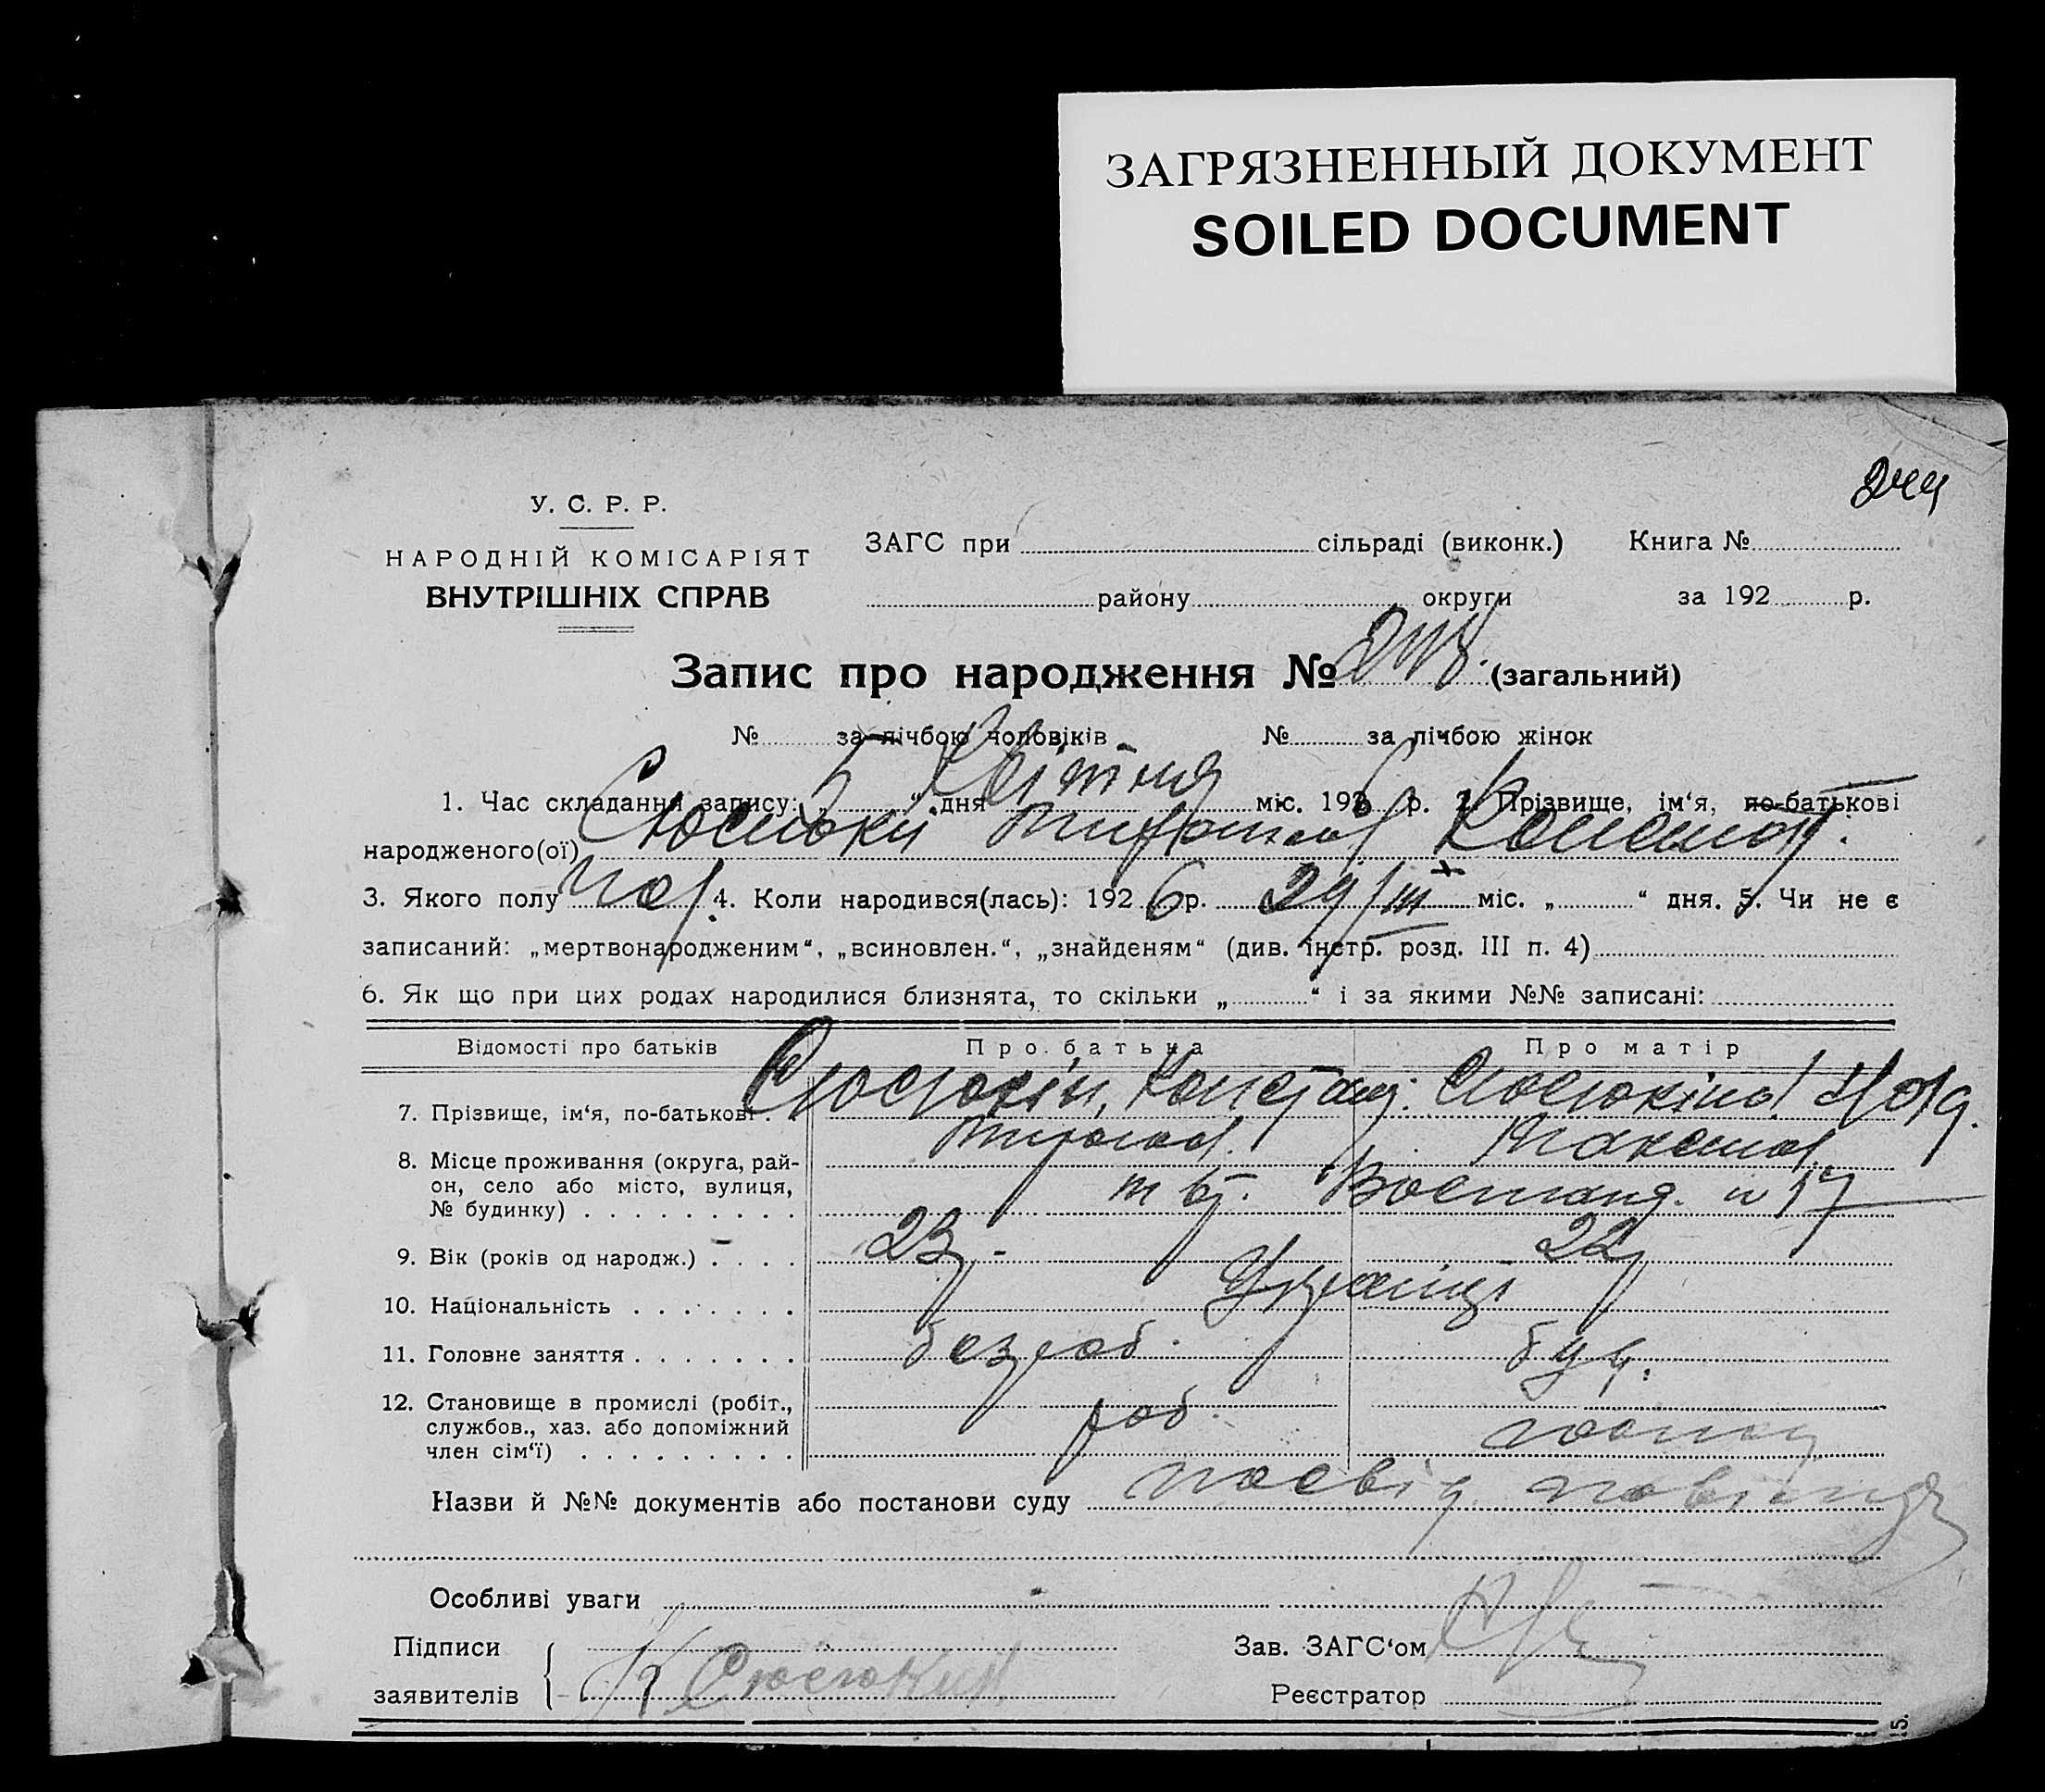 ЗАГРЯЗНЕННЫЙ ДОКУМЕНТ
SOILED DOCUMENT
244
У. С. Р. Р.
НАРОДНІЙ КОМІСАРІЯТ
ВНУТРІШНІХ СПРАВ
ЗАГС при сільраді (виконк.) Книга №
району округи за 192 р.
Запис про народження № (загальний)
№ за лічбою чоловіків № за лічбою жінок
1. Час складання запису: „ 5 “ дня Квітня міс. 1926 р. 2. Прізвище, ім‘я, по-батькові
народженого(ої)
3. Якого полу чол. 4. Коли народився(лась): 1926 р. 29/III міс. „ “ дня. 5. Чи не є
записаний: „мертвонародженим“, „всиновлен.“, „знайденям“ (див. інстр. розд. III п. 4)
6. Як що при цих родах народилися близнята, то скільки „ “ і за якими №№ записані:
Відомості про батьків Про батька Про матір
7. Прізвище, ім‘я, по-батькові . Сюсюкін, Констант. Сюсюкіна
8. Місце проживання (округа, рай-
он, село або місто, вулиця,
№ будинку) . . . . . . . . . 17
9. Вік (років од народж.) . . . . 23 22
10. Національність . . . . . . . Українці
11. Головне заняття . . . . . . . безроб.
12. Становище в промислі (робіт.,
службов., хаз. або допоміжний
член сім‘ї) . . . . . . . . . роб.
Назви й №№ документів або постанови суду посвід
Особливі уваги
Підписи Зав. ЗАГС‘ом
заявителів К Сюсюкин Реєстратор